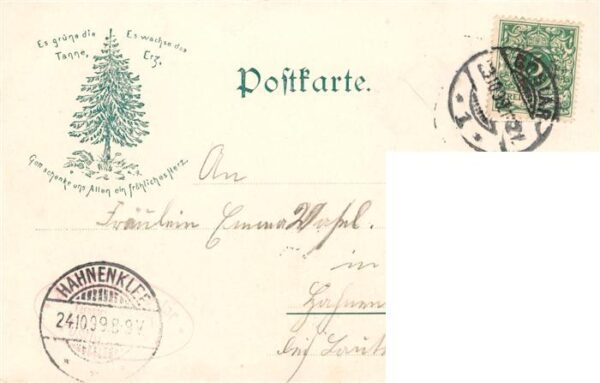 Es grüne die Tanne,
Es wachse das Erz,
Gott schenke uns Allen ein fröhliches Herz.
Postkarte.
GOSLAR
* 1 *
An
Fräulein Emma
in
Hahnen
bei Laut
HAHNENKLEE
24.10.99.8-9V.